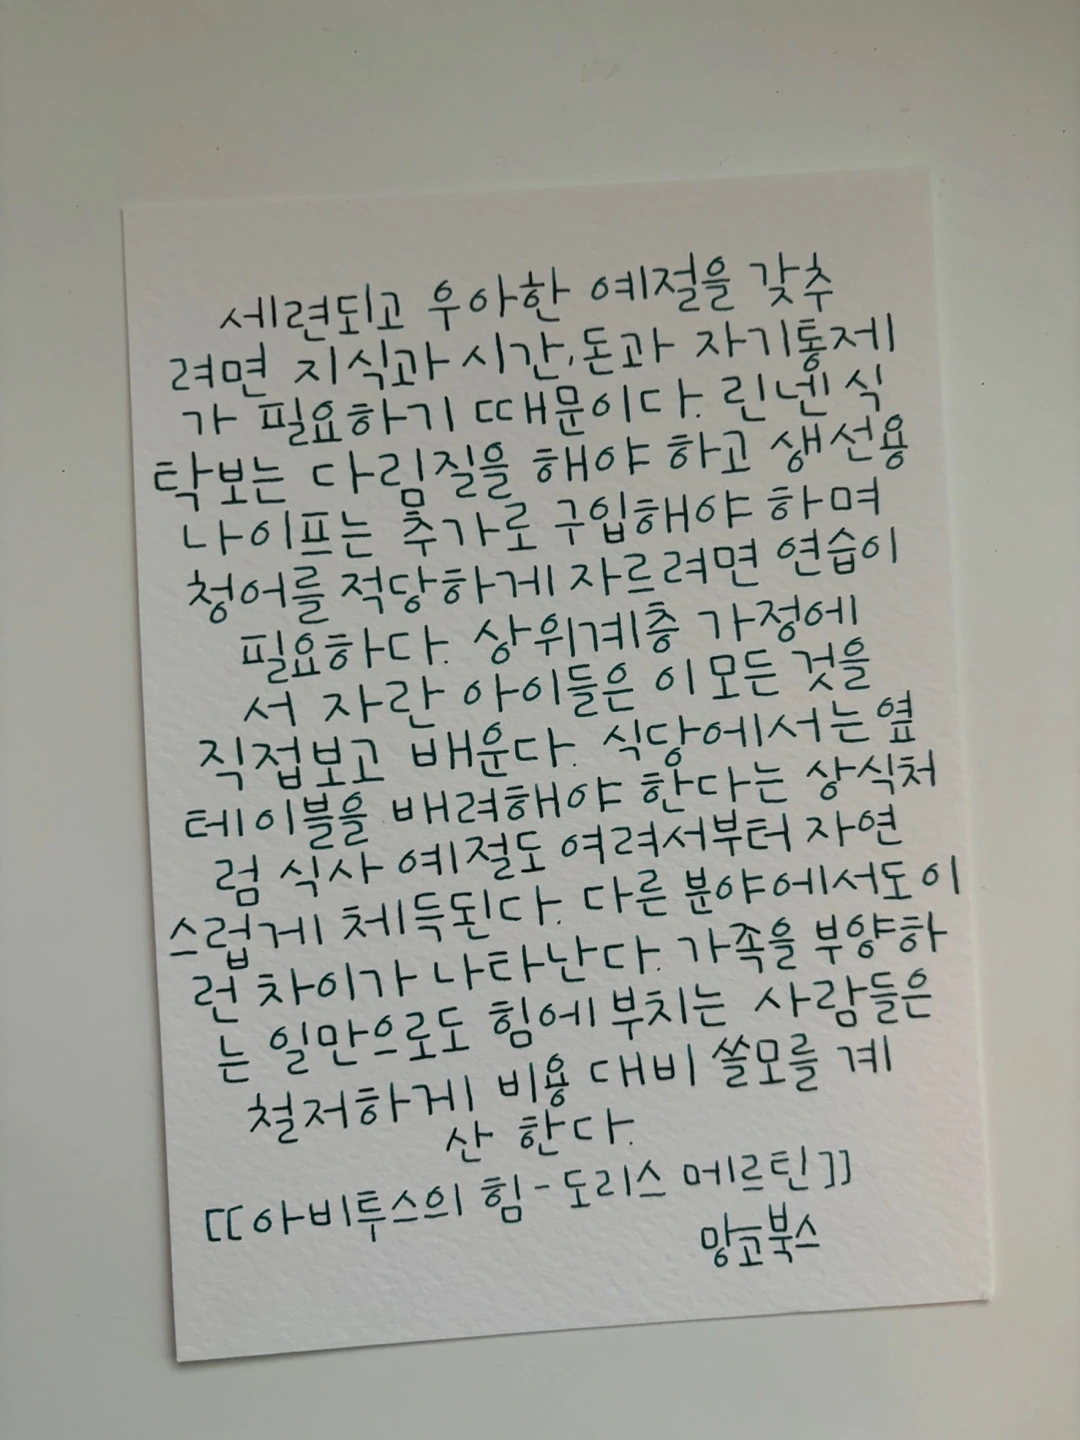 세련되고 우아한 예절을 갖추
려면 지식과 시간, 돈과 자기통제
가 필요하기 때문이다. 린넨 식
탁보는 다림질을 해야 하고 생선용
나이프는 추가로 구입해야 하며
청어를 적당하게 자르려면 연습이
필요하다. 상위계층 가정에
서 자란 아이들은 이 모든 것을
직접보고 배운다. 식당에서는 옆
테이블을 배려해야 한다는 상식처
럼 식사 예절도 여려서부터 자연
스럽게 체득된다. 다른 분야에서도 이
런 차이가 나타난다. 가족을 부양하
는 일만으로도 힘에 부치는 사람들은
철저하게 비용 대비 쓸모를 계
산 한다.
[[아비투스의 힘 - 도리스 메르틴]]
망고북스